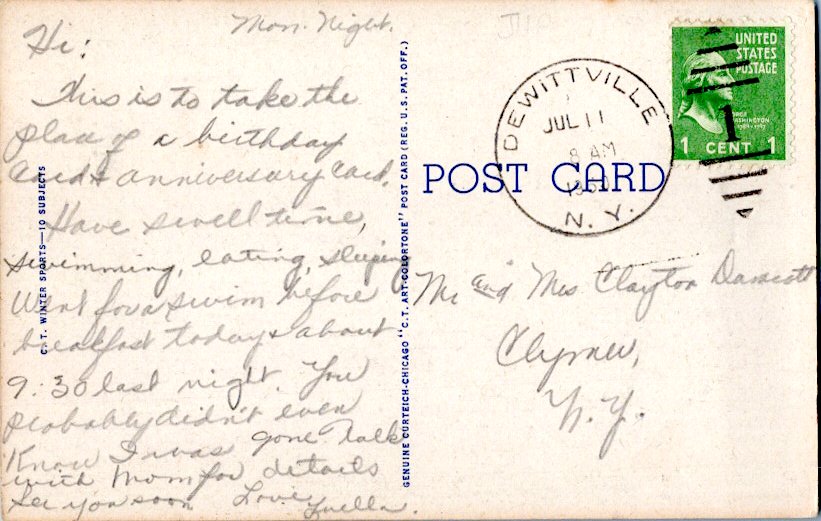 Mon. Night.
Hi:
This is to take the
place of a birthday
card & anniversary card.
Have swell time,
swimming, eating, sleeping
Went for a swim before
breakfast today & about
9:30 last night. You
probably didn't even
Know I was gone Talk
with Mom for details
See you soon Love
Luella.
C. T. WINTER SPORTS—10 SUBJECTS
GENUINE CURTEICH-CHICAGO "C. T. ART-COLORTONE" POST CARD (REG. U. S. PAT. OFF.)
POST CARD
DEWITTVILLE
JUL 11
8 AM
N. Y.
UNITED
STATES
POSTAGE
1 CENT 1
1
Mr and Mrs Clayton
Clymer,
N. Y.